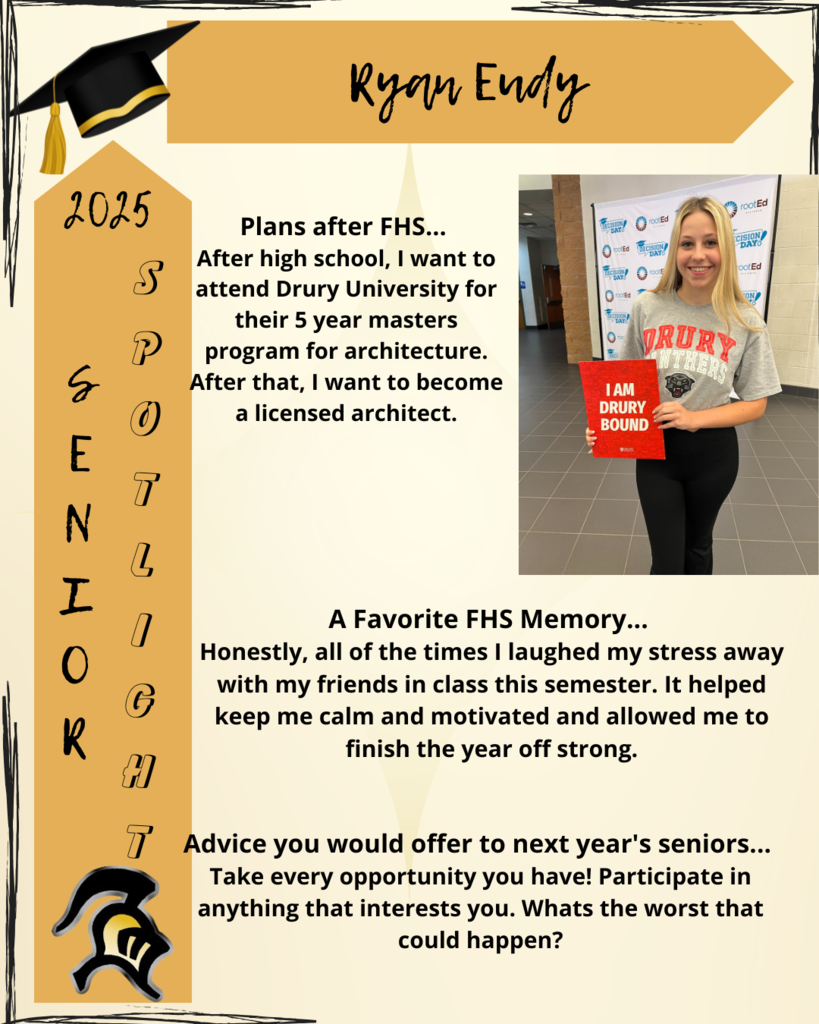 Ryan Endy
2025
SENIOR
SPOTLIGHT
Plans after FHS...
After high school, I want to
attend Drury University for
their 5 year masters
program for architecture.
After that, I want to become
a licensed architect.
rootEd
DECISION
DAY!
rootEd
rootEd
DRURY
PANTHERS
I AM
DRURY
BOUND
A Favorite FHS Memory...
Honestly, all of the times I laughed my stress away
with my friends in class this semester. It helped
keep me calm and motivated and allowed me to
finish the year off strong.
Advice you would offer to next year's seniors...
Take every opportunity you have! Participate in
anything that interests you. Whats the worst that
could happen?